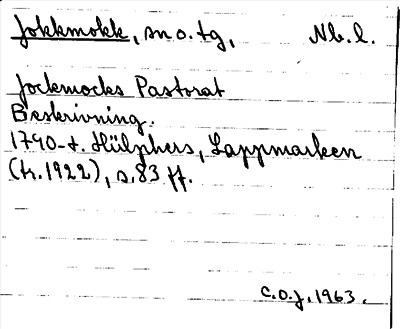 Jokkmokk, sn o. tg, Nb. l.
Jockmocks Pastorat
Beskrivning.
1790-t. Hülphers, Lappmarken
(tr. 1922), s. 83 ff.
C.O.J. 1963.